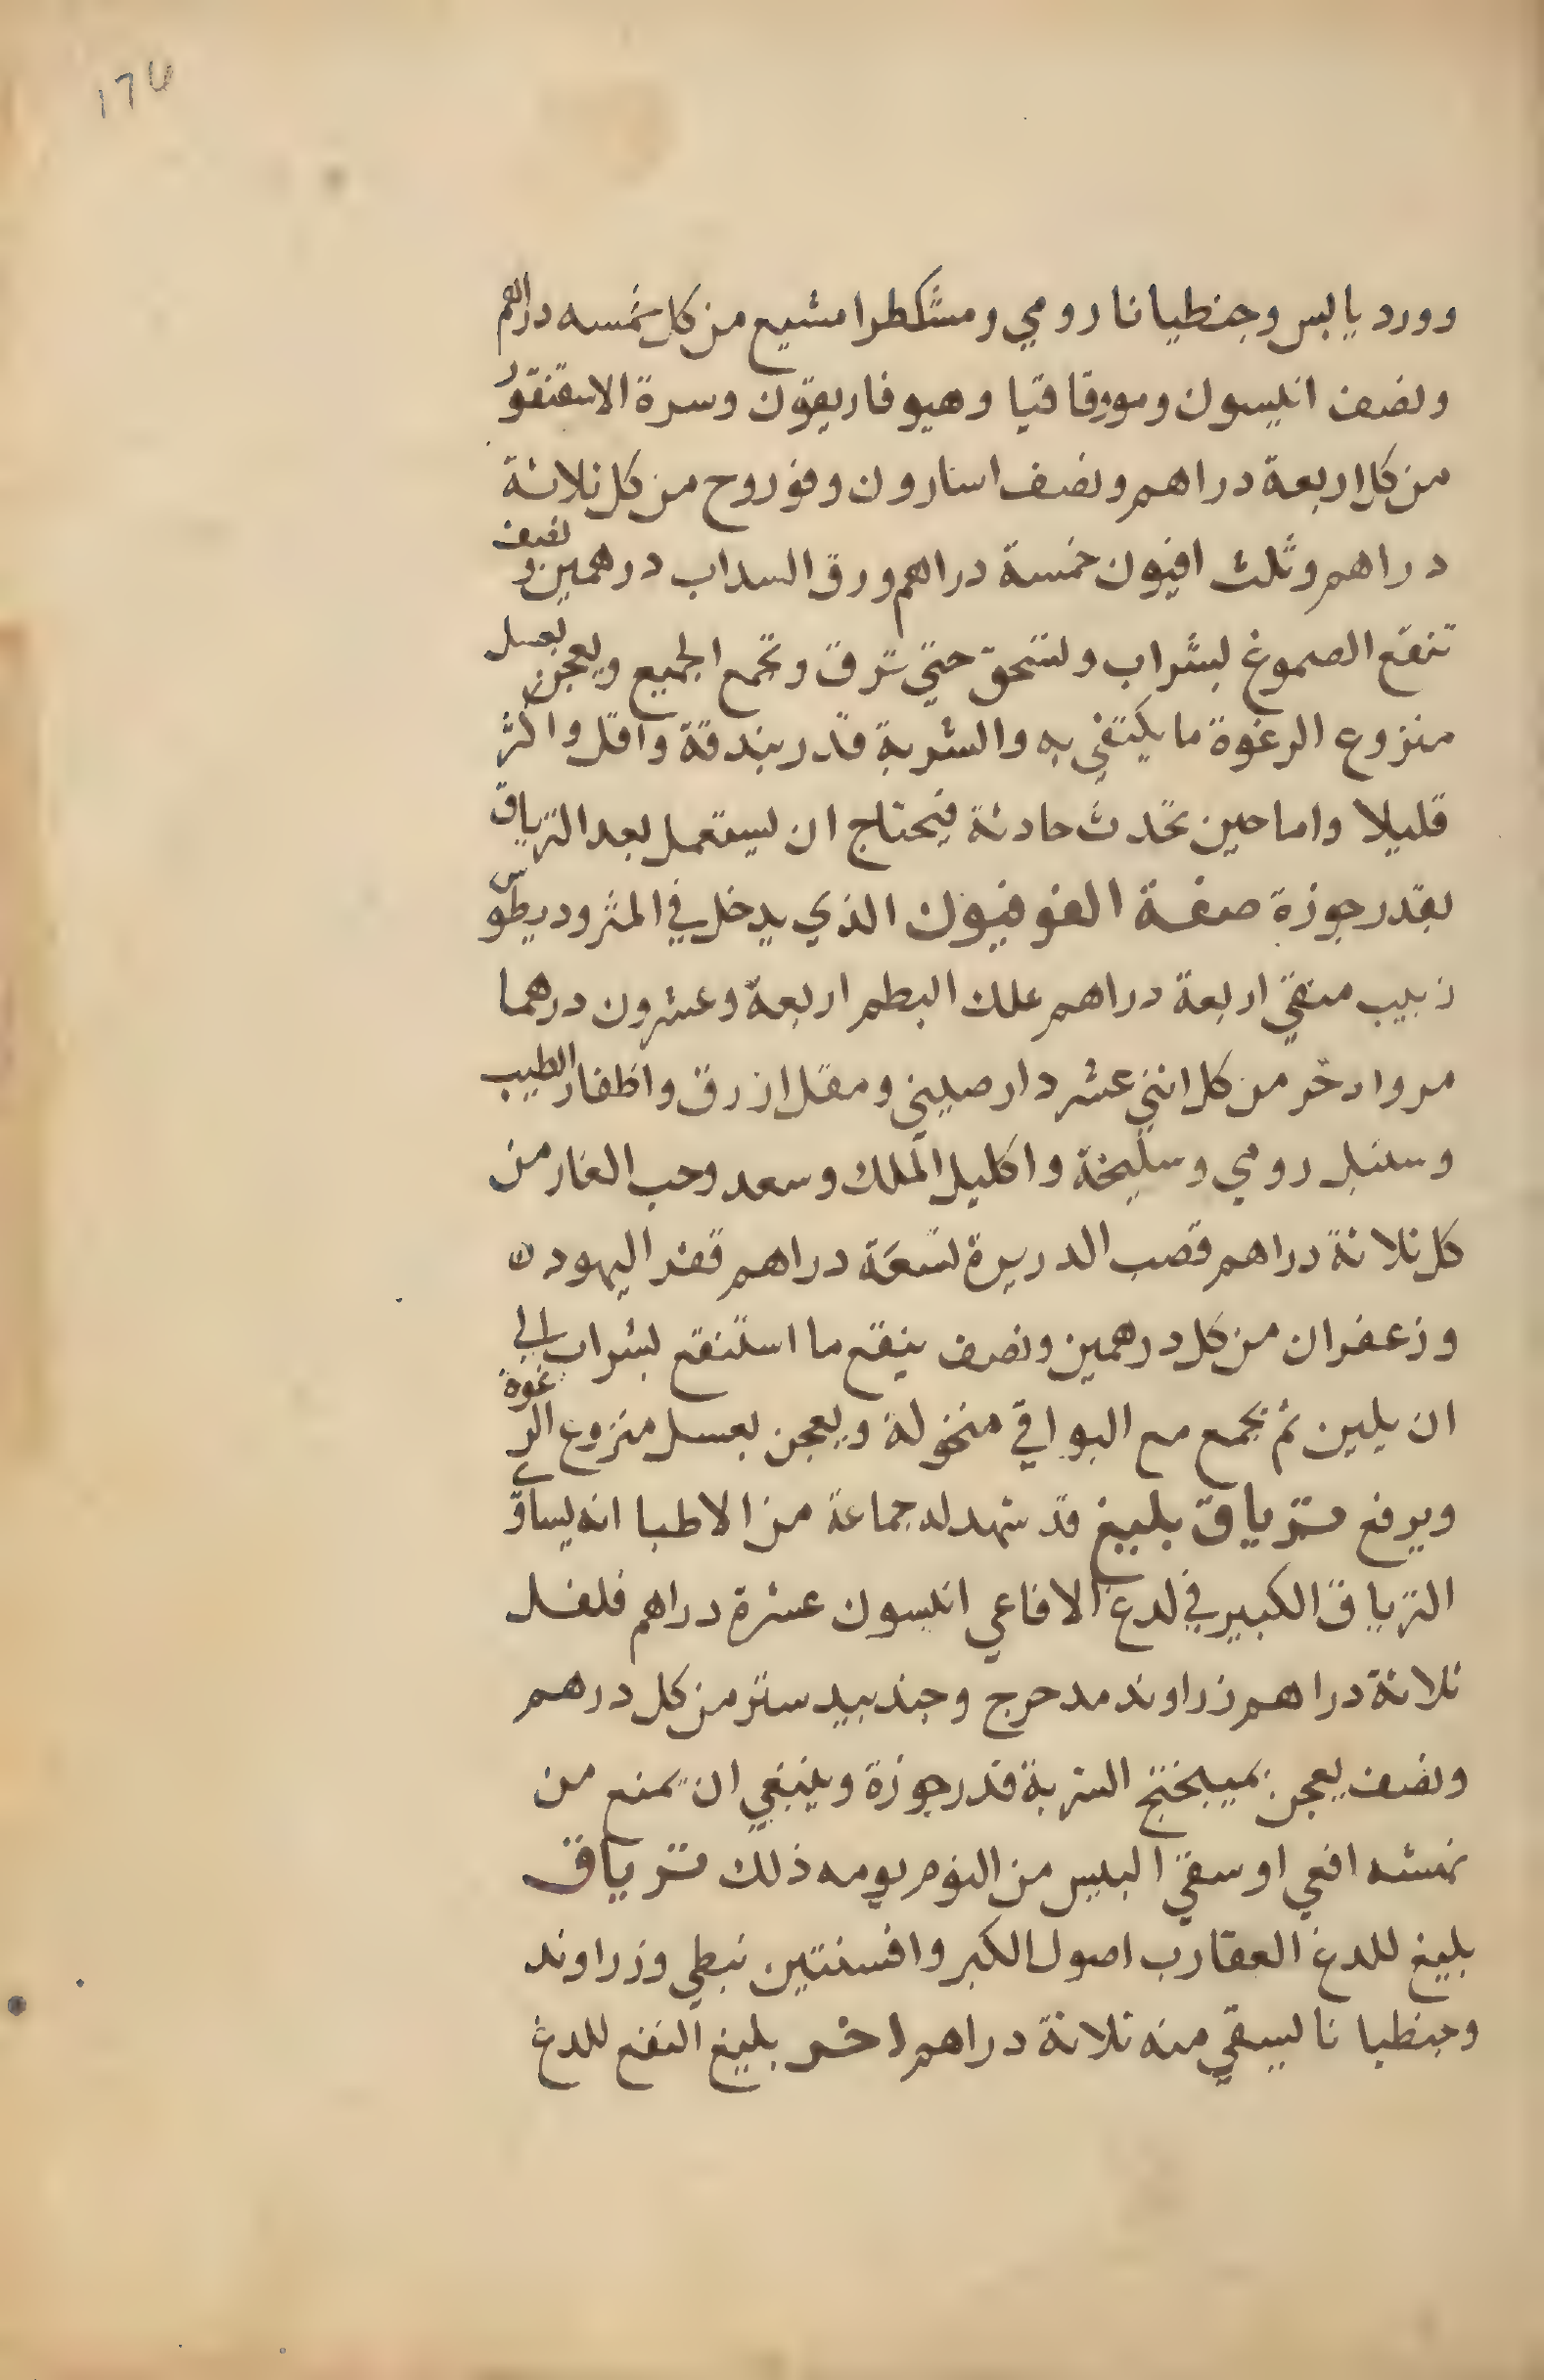 ١٦٧
وورد يابس وجنطيانا رومي ومشكطرامشيع من كل خمسه دراهم
ونصف انيسون وموو قاقيا وهيوفاريقون وسرة الاسقنقور
من كل اربعة دراهم ونصف اسارون وفو روح من كل ثلاثة
دراهم وثلث افيون خمسة دراهم ورق السداب درهمين ونصف
تنقع الصموغ بشراب وتسحق حتي ترق وتجمع الجميع ويعجن بعسل
منزوع الرغوة ما يكتفي به والشربة قدر بندقة واقل واكثر
قليلا واما حين تحدث حادثة فيحتاج ان يستعمل بعد الترياق
بقدر جوزة صفة القوفيون الذي يدخل في المثروديطوس
زبيب منقي اربعة دراهم علك البطم اربعة وعشرون درهما
مر واذخر من كل اثني عشر دارصيني ومقل ازرق واظفار الطيب
وسنبل رومي وسليخة واكليل الملك وسعد وحب الغار من
كل ثلاثة دراهم قصب الدريرة تسعة دراهم قفر اليهود
وزعفران من كل درهمين ونصف ينقع ما استنقع بشراب الي
ان يلين ثم يجمع مع البواقي منخولة ويعجن بعسل منزوع الرغوة
ويرفع ترياق بليغ قد شهد له جماعة من الاطبا انه يساوي
الترياق الكبير في لدغ الافاعي انيسون عشرة دراهم فلفل
ثلاثة دراهم زراوند مدحرج وجندبيدستر من كل درهم
ونصف يعجن بميبختج الشربة قدر جوزة وينبغي ان يمنع من
نهشه افعي او سقي البيس من النوم يومه ذلك ترياق
بليغ للدغ العقارب اصول الكبر وافسنتين نبطي وزراوند
وجنطيانا يسقي منه ثلاثة دراهم اخر بليغ النفع للدغ